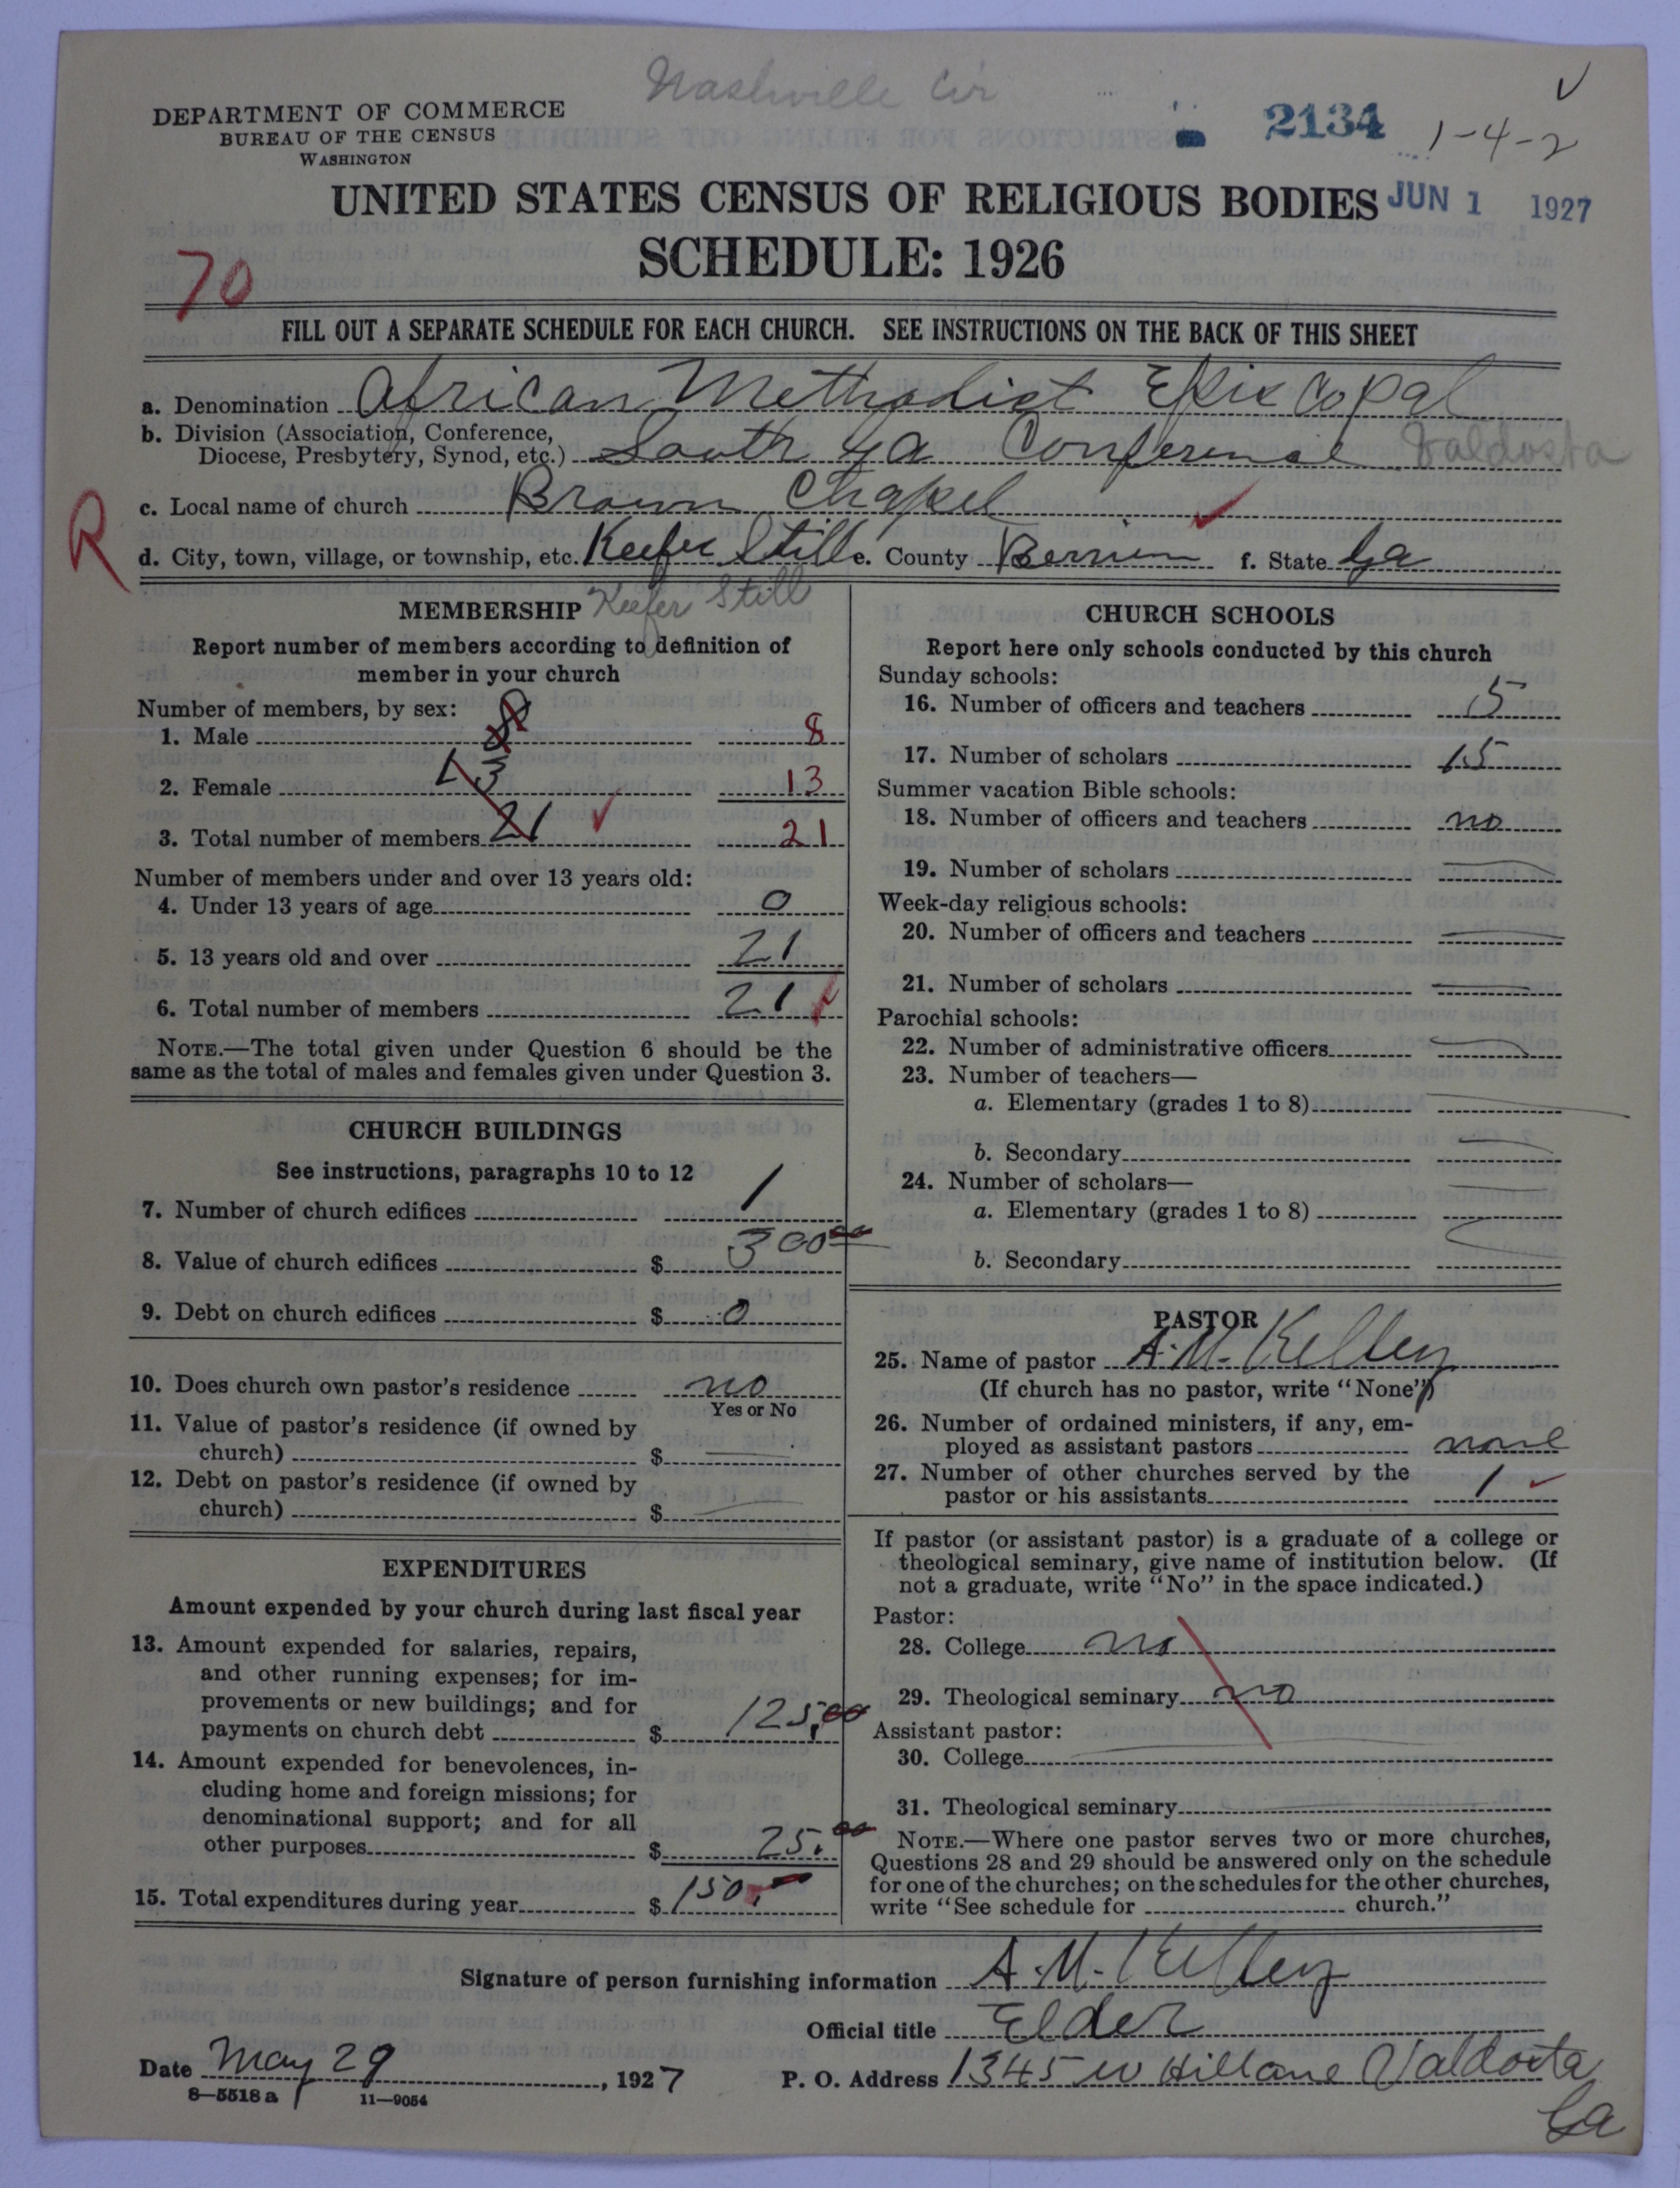 Nashville Cir
DEPARTMENT OF COMMERCE
BUREAU OF THE CENSUS
WASHINGTON
2134
1-4-2
UNITED STATES CENSUS OF RELIGIOUS BODIES
JUN 1 1927
SCHEDULE: 1926
70
FILL OUT A SEPARATE SCHEDULE FOR EACH CHURCH. SEE INSTRUCTIONS ON THE BACK OF THIS SHEET
a. Denomination African Methodist Episcopal
b. Division (Association, Conference,
Diocese, Presbytery, Synod, etc.) South Ga Conference Valdosta
R
c. Local name of church Brown Chapel
d. City, town, village, or township, etc. Keefer Still e. County Berrien f. State Ga
MEMBERSHIP Keefer Still
Report number of members according to definition of
member in your church
Number of members, by sex:
1. Male 8 8
2. Female 13 13
3. Total number of members 21 21
Number of members under and over 13 years old:
4. Under 13 years of age 0
5. 13 years old and over 21
6. Total number of members 21
NOTE.—The total given under Question 6 should be the
same as the total of males and females given under Question 3.
CHURCH BUILDINGS
See instructions, paragraphs 10 to 12
7. Number of church edifices 1
8. Value of church edifices $ 300 00
9. Debt on church edifices $ 0
10. Does church own pastor's residence no
Yes or No
11. Value of pastor's residence (if owned by
church) $ —
12. Debt on pastor's residence (if owned by
church) $ —
EXPENDITURES
Amount expended by your church during last fiscal year
13. Amount expended for salaries, repairs,
and other running expenses; for im-
provements or new buildings; and for
payments on church debt $ 125.00
14. Amount expended for benevolences, in-
cluding home and foreign missions; for
denominational support; and for all
other purposes $ 25.00
15. Total expenditures during year $ 150.
CHURCH SCHOOLS
Report here only schools conducted by this church
Sunday schools:
16. Number of officers and teachers 5
17. Number of scholars 15
Summer vacation Bible schools:
18. Number of officers and teachers no
19. Number of scholars —
Week-day religious schools:
20. Number of officers and teachers —
21. Number of scholars —
Parochial schools:
22. Number of administrative officers —
23. Number of teachers—
a. Elementary (grades 1 to 8) —
b. Secondary —
24. Number of scholars—
a. Elementary (grades 1 to 8)
b. Secondary
PASTOR
25. Name of pastor A. M. Kelley
(If church has no pastor, write "None")
26. Number of ordained ministers, if any, em-
ployed as assistant pastors none
27. Number of other churches served by the
pastor or his assistants 1
If pastor (or assistant pastor) is a graduate of a college or
theological seminary, give name of institution below. (If
not a graduate, write "No" in the space indicated.)
Pastor:
28. College no
29. Theological seminary no
Assistant pastor:
30. College
31. Theological seminary
NOTE.—Where one pastor serves two or more churches,
Questions 28 and 29 should be answered only on the schedule
for one of the churches; on the schedules for the other churches,
write "See schedule for church."
Signature of person furnishing information A. M. Kelley
Official title Elder
Date May 29, 1927 P. O. Address 1345 W Hill ane Valdosta
Ga
8—5518 a 11—9054